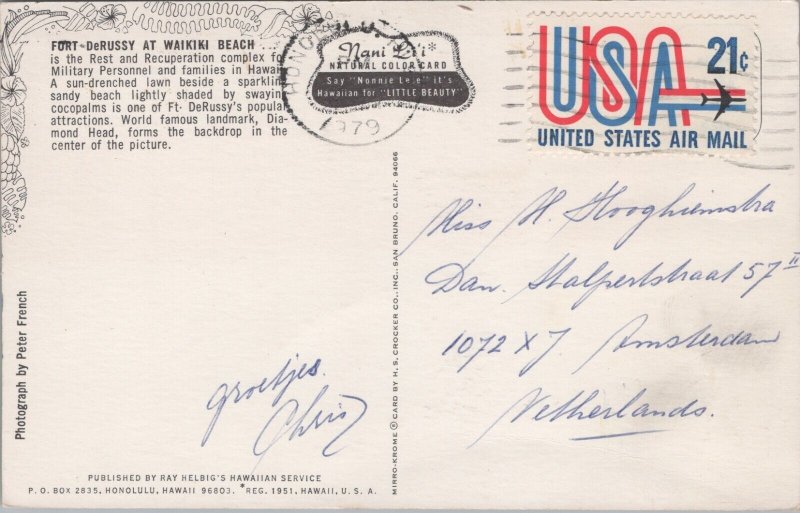 FORT DeRUSSY AT WAIKIKI BEACH
is the Rest and Recuperation complex for
Military Personnel and families in Hawaii.
A sun-drenched lawn beside a sparkling
sandy beach lightly shaded by swaying
cocopalms is one of Ft. DeRussy's popular
attractions. World famous landmark, Dia-
mond Head, forms the backdrop in the
center of the picture.
HONOLULU
1979
Nani Li'i*
NATURAL COLOR CARD
Say "Nonnie Lee" it's
Hawaiian for "LITTLE BEAUTY"
USA 21¢
UNITED STATES AIR MAIL
Photograph by Peter French
groetjes.
Chris
MIRRO-KROME ® CARD BY H. S. CROCKER CO., INC., SAN BRUNO, CALIF. 94066
Miss H. Hooghiemstra
Dan. Stalpertstraat 57 II
1072 XJ Amsterdam
Netherlands.
PUBLISHED BY RAY HELBIG'S HAWAIIAN SERVICE
P. O. BOX 2835, HONOLULU, HAWAII 96803. *REG. 1951, HAWAII, U. S. A.